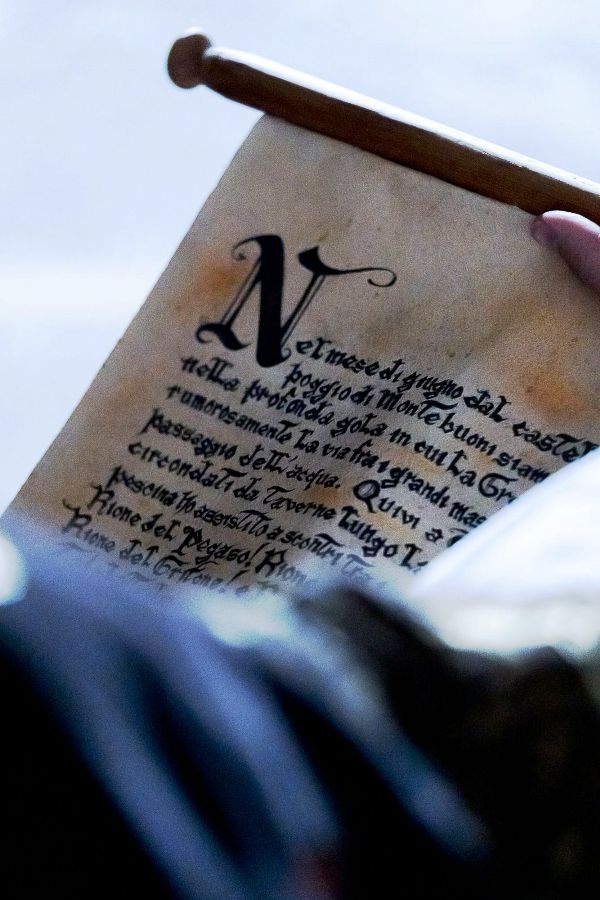 Nel mese di giugno dal castel
poggio di Montebuoni siam
nella profonda gola in cui La Gr
rumorosamente La via fra i grandi mas
passaggio dell'acqua. Quivi a
circondati da Taverne Lungo L
pescina ho assistito a scontri Tra
Rione del Pegaso, Rion
Rione del Grifone, e